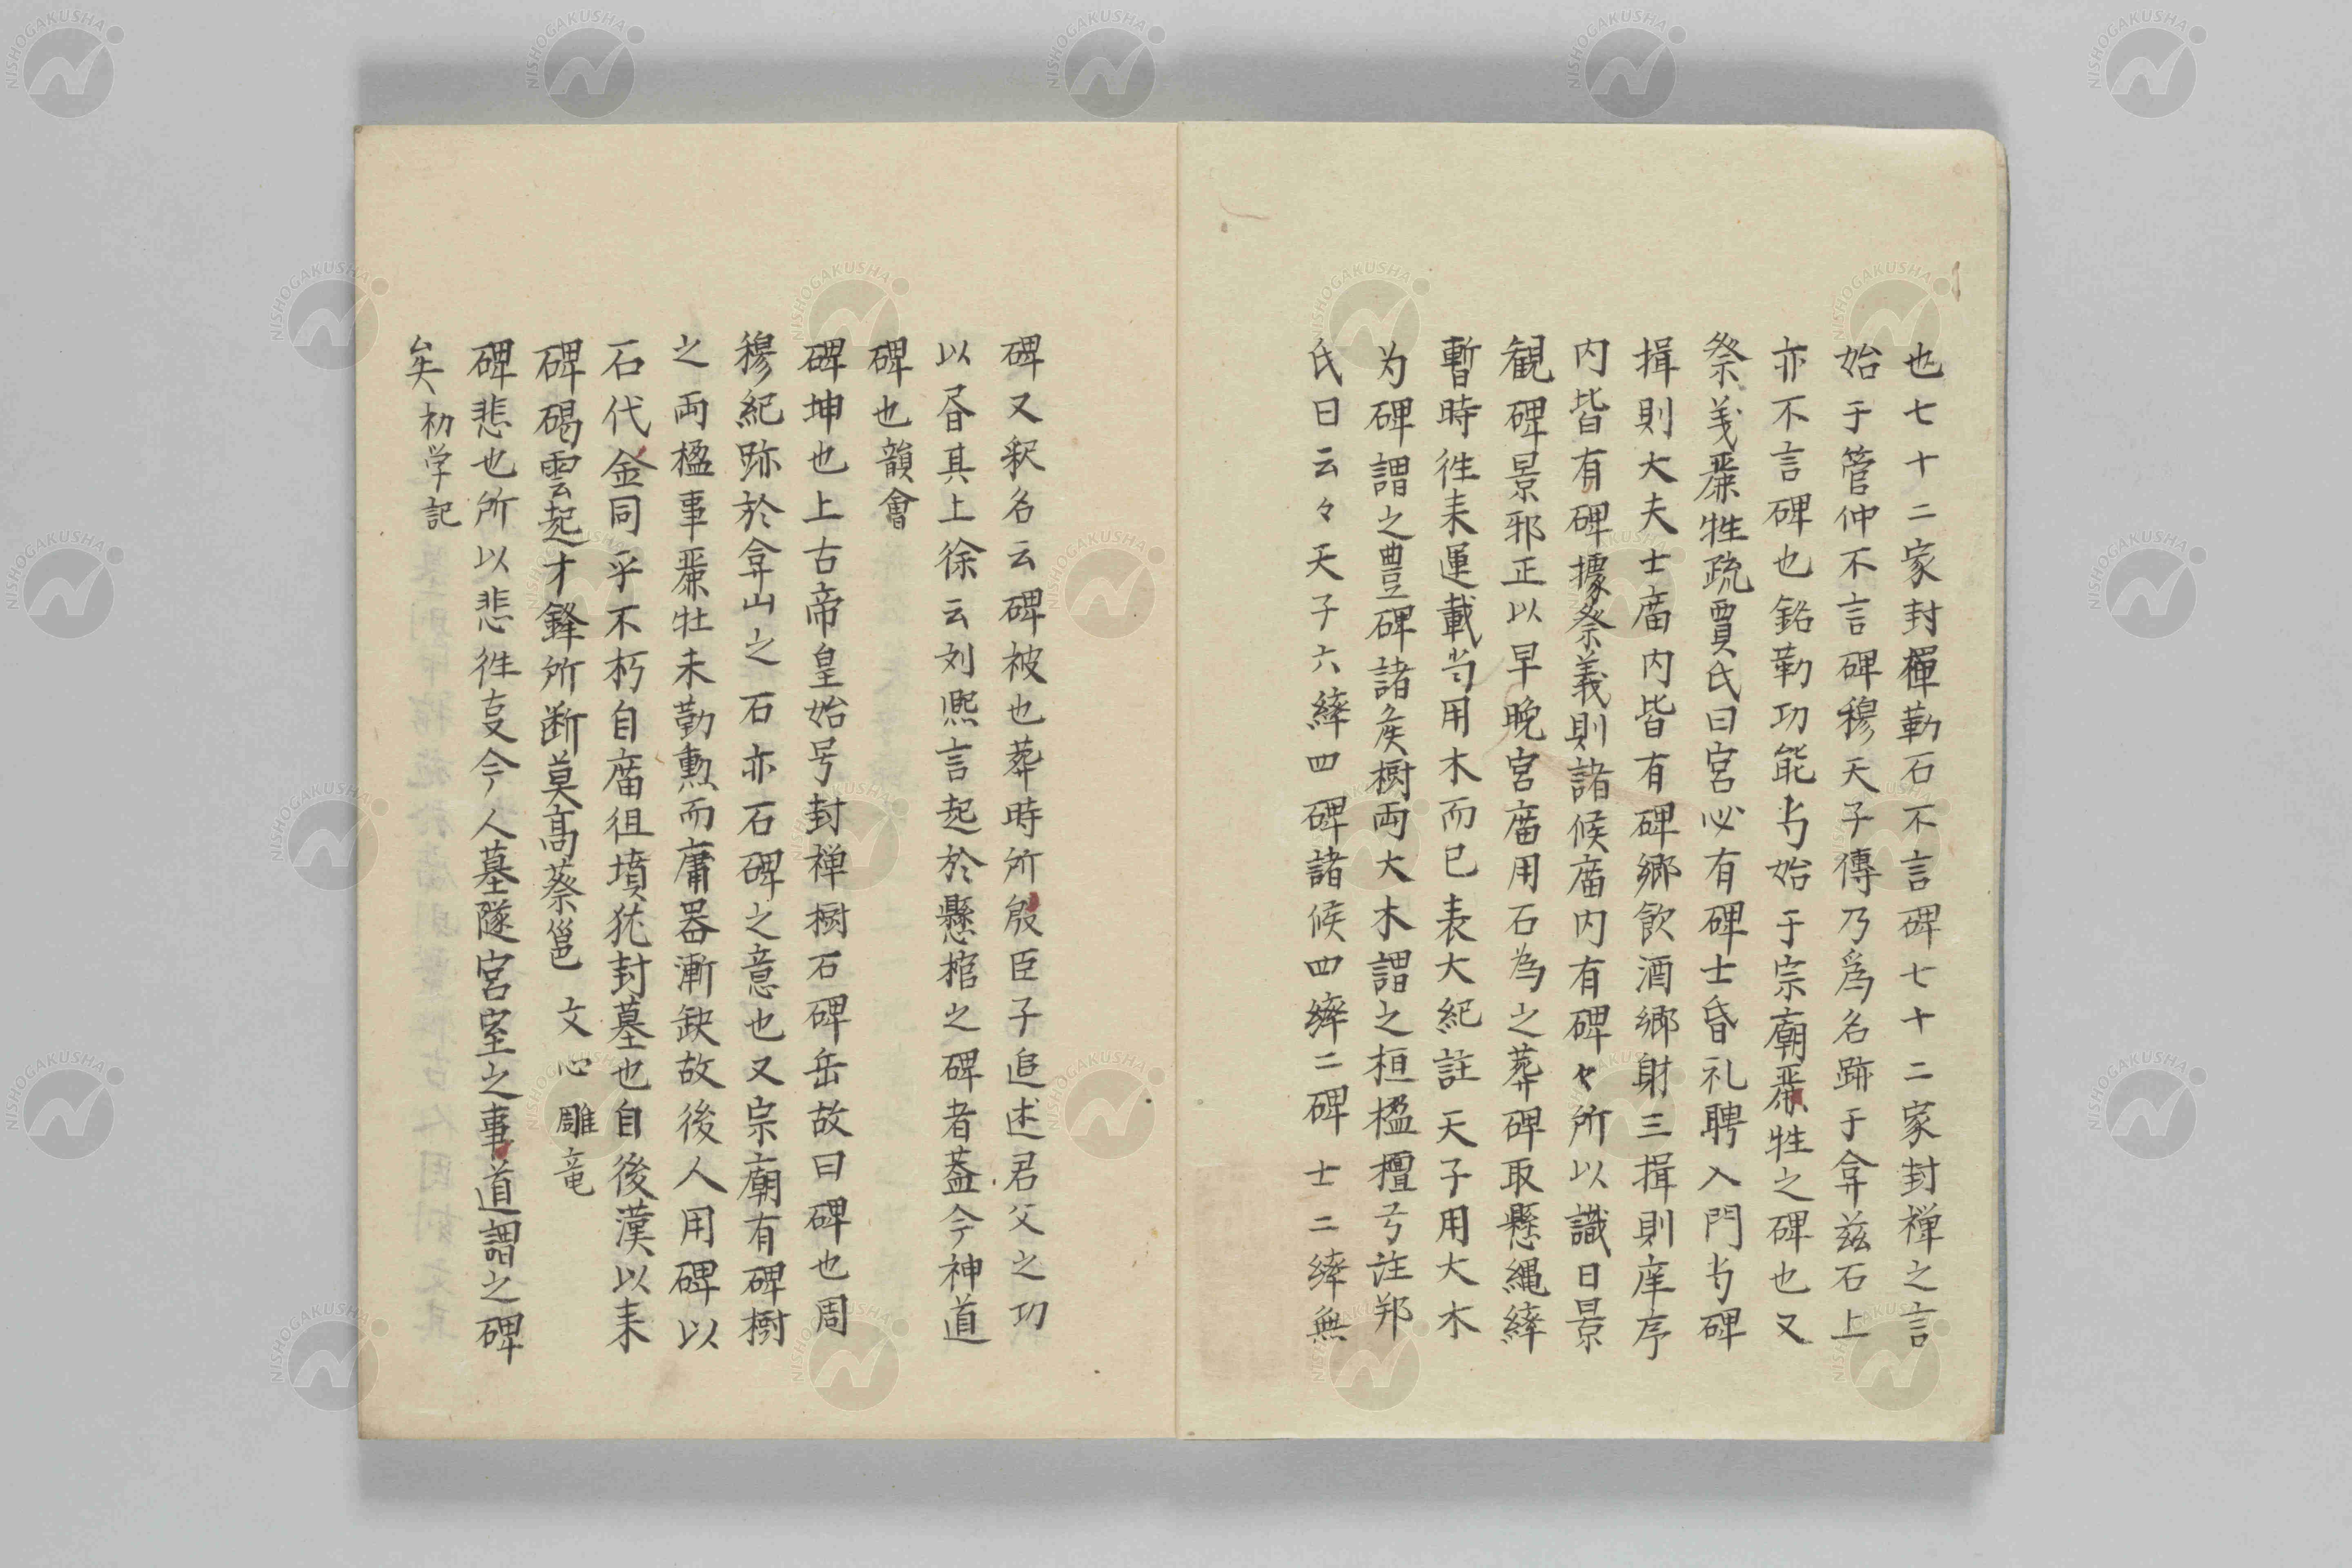 也七十二家封禪勒石不言碑七十二家封禅之言
始于管仲不言碑穆天子傳乃為名跡于弇兹石上
亦不言碑也銘勒功能㫖始于宗廟麗牲之碑也又
祭義麗牲疏賈氏曰宮必有碑士昏礼聘入門㫖碑
揖則大夫士庿内皆有碑郷飲酒郷射三揖則庠序
内皆有碑據祭義則諸候庿内有碑々所以識日景
観碑景邪正以早晩宮庿用石為之葬碑取懸縄繂
暫時徃来運載当用木而已表大紀註天子用大木
为碑謂之豊碑諸矦樹両大木謂之桓楹檀弓註郑
氏曰云々天子六繂四碑諸候四繂二碑士二繂無
碑又釈名云碑被也葬時所殷臣子追述君父之功
以昏其上徐云刘熈言起於懸棺之碑者葢今神道
碑也韻會
碑坤也上古帝皇始号封禅樹石碑岳故曰碑也周
穆紀跡於弇山之石亦石碑之意也又宗廟有碑樹
之両楹事麗牡未勒勲而庸器漸缺故後人用碑以
石代金同乎不朽自庿徂墳犹封墓也自後漢以来
碑碣雲起才鋒所断莫髙蔡邕 文心雕竜
碑悲也所以悲徃叓今人墓隧宮室之事道謂之碑
矣初学記